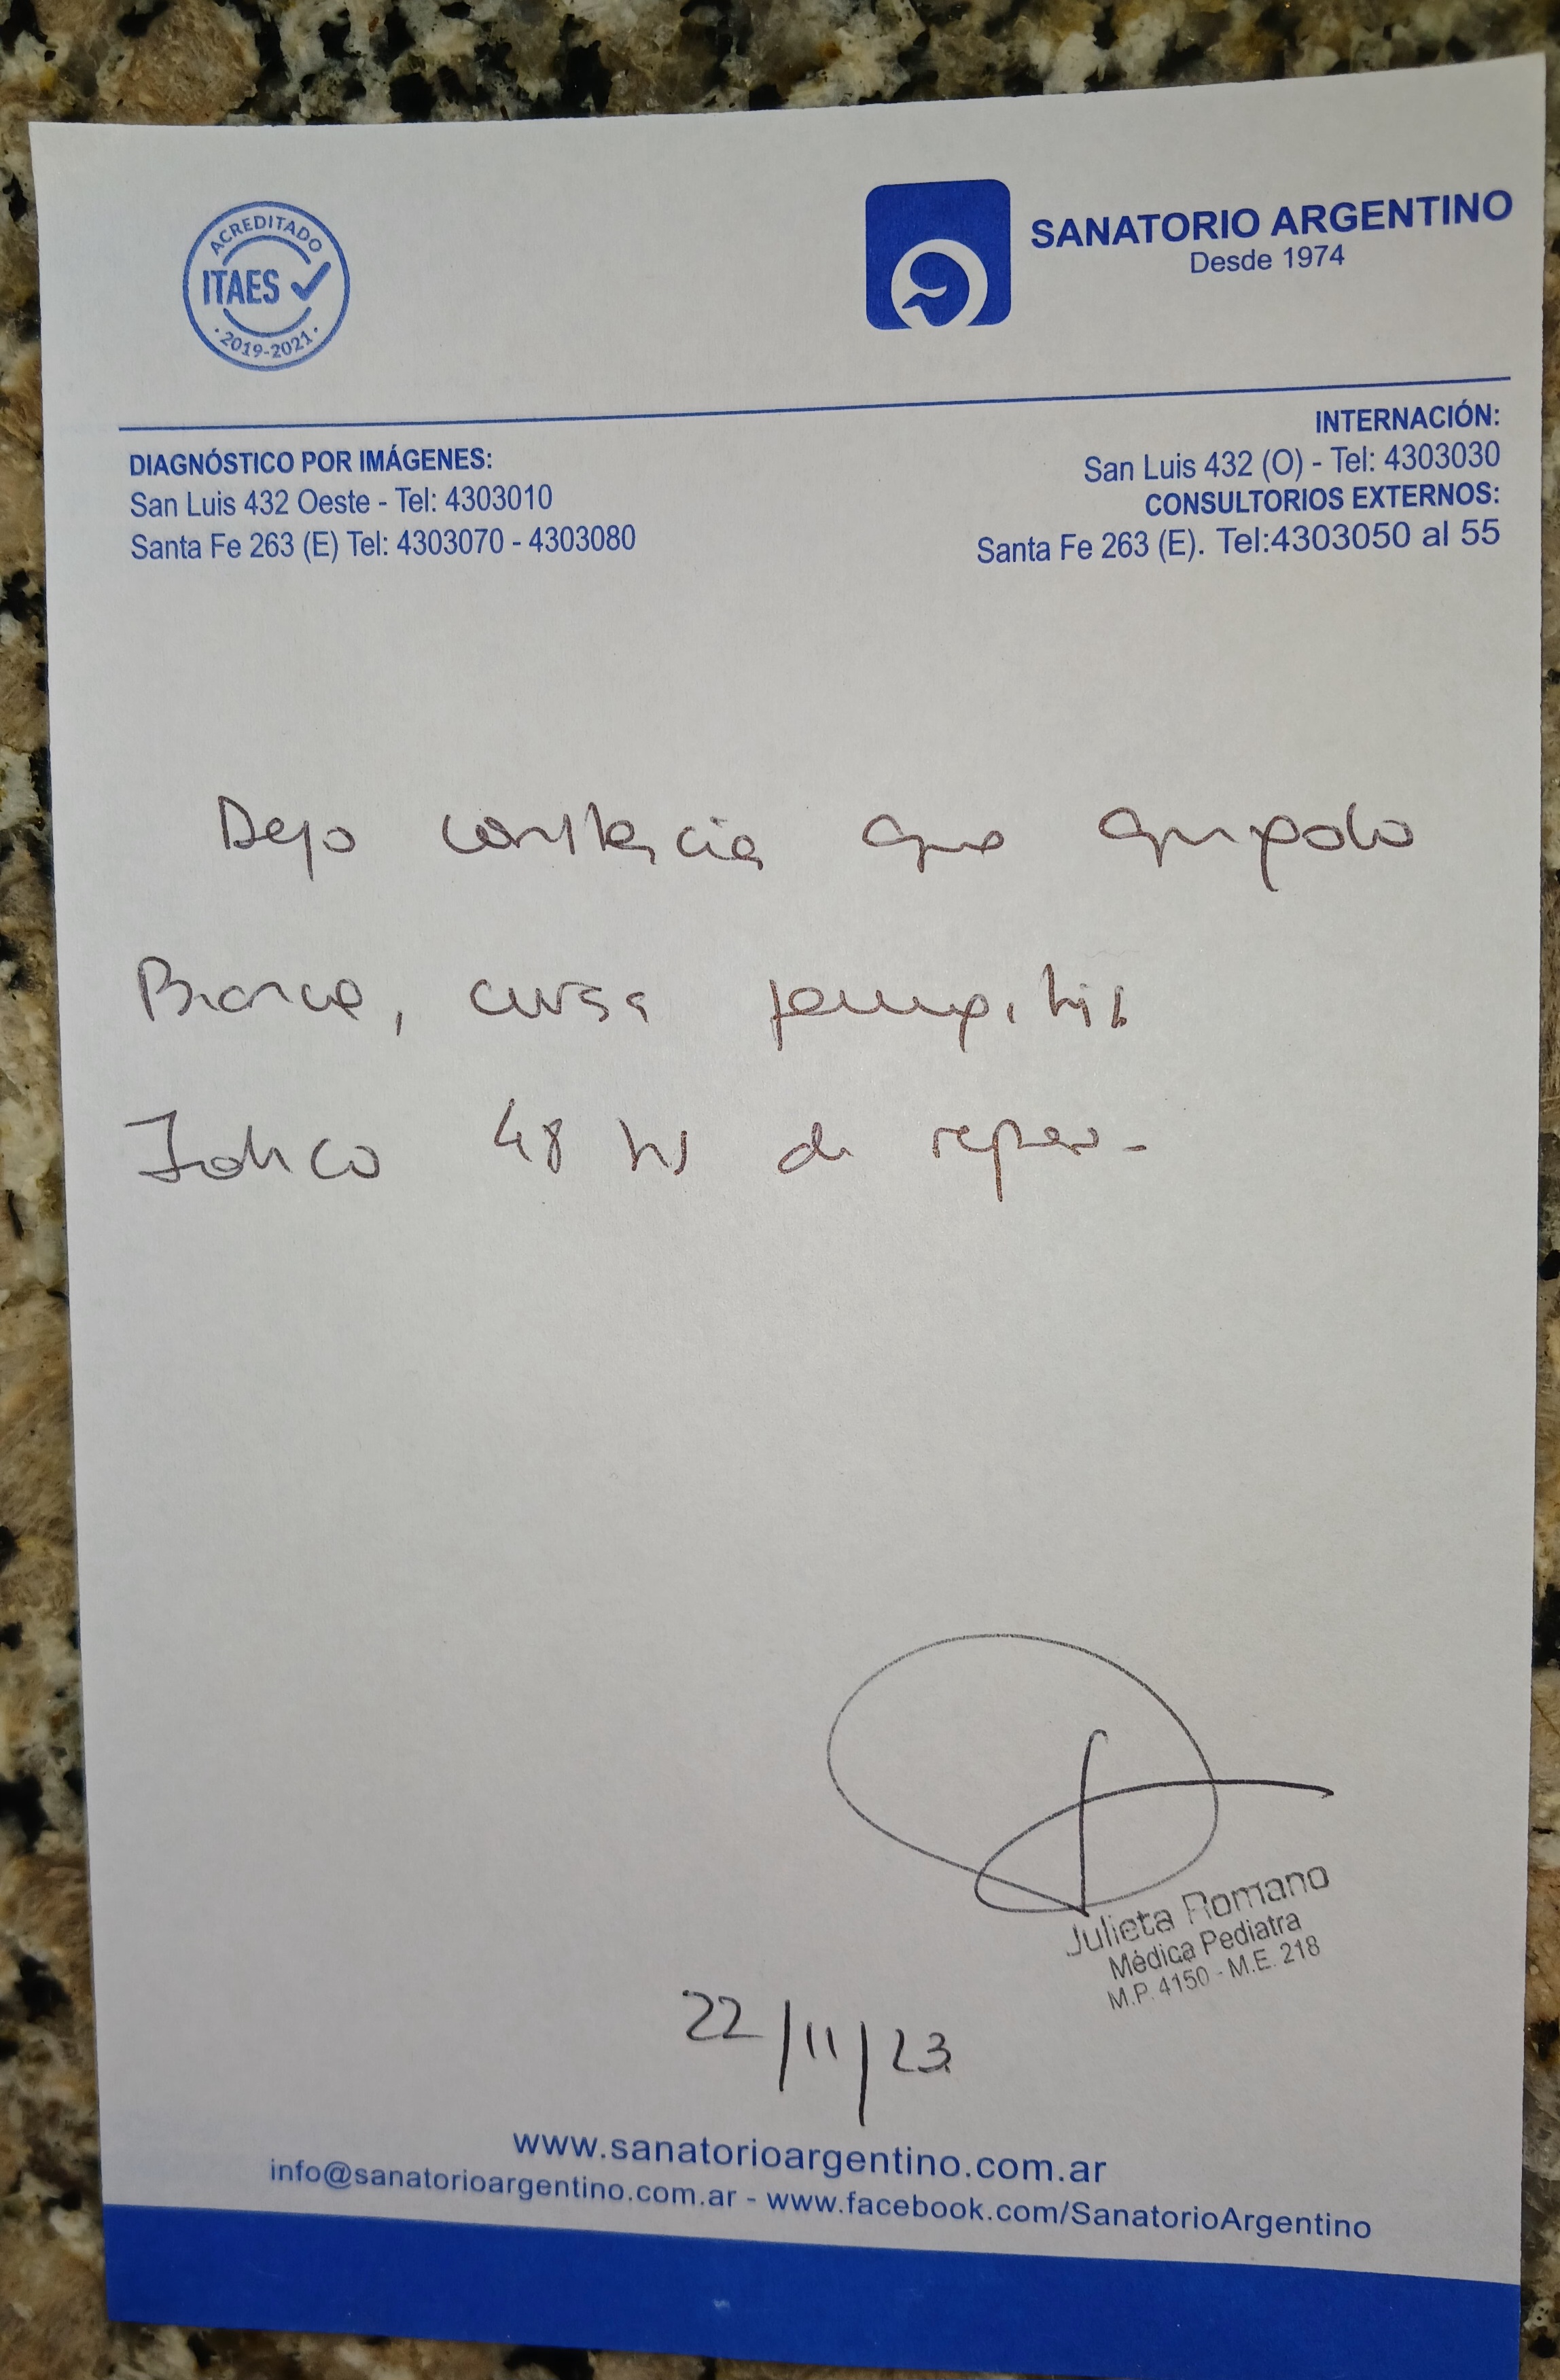 ACREDITADO
ITAES
· 2019-2021 ·
SANATORIO ARGENTINO
Desde 1974
DIAGNÓSTICO POR IMÁGENES:
San Luis 432 Oeste - Tel: 4303010
Santa Fe 263 (E) Tel: 4303070 - 4303080
INTERNACIÓN:
San Luis 432 (O) - Tel: 4303030
CONSULTORIOS EXTERNOS:
Santa Fe 263 (E). Tel:4303050 al 55
Dejo constancia que
cursa
Indico 48 hs de reposo.
Julieta Romano
Médica Pediatra
M.P. 4150 - M.E. 218
22/11/23
www.sanatorioargentino.com.ar
info@sanatorioargentino.com.ar - www.facebook.com/SanatorioArgentino